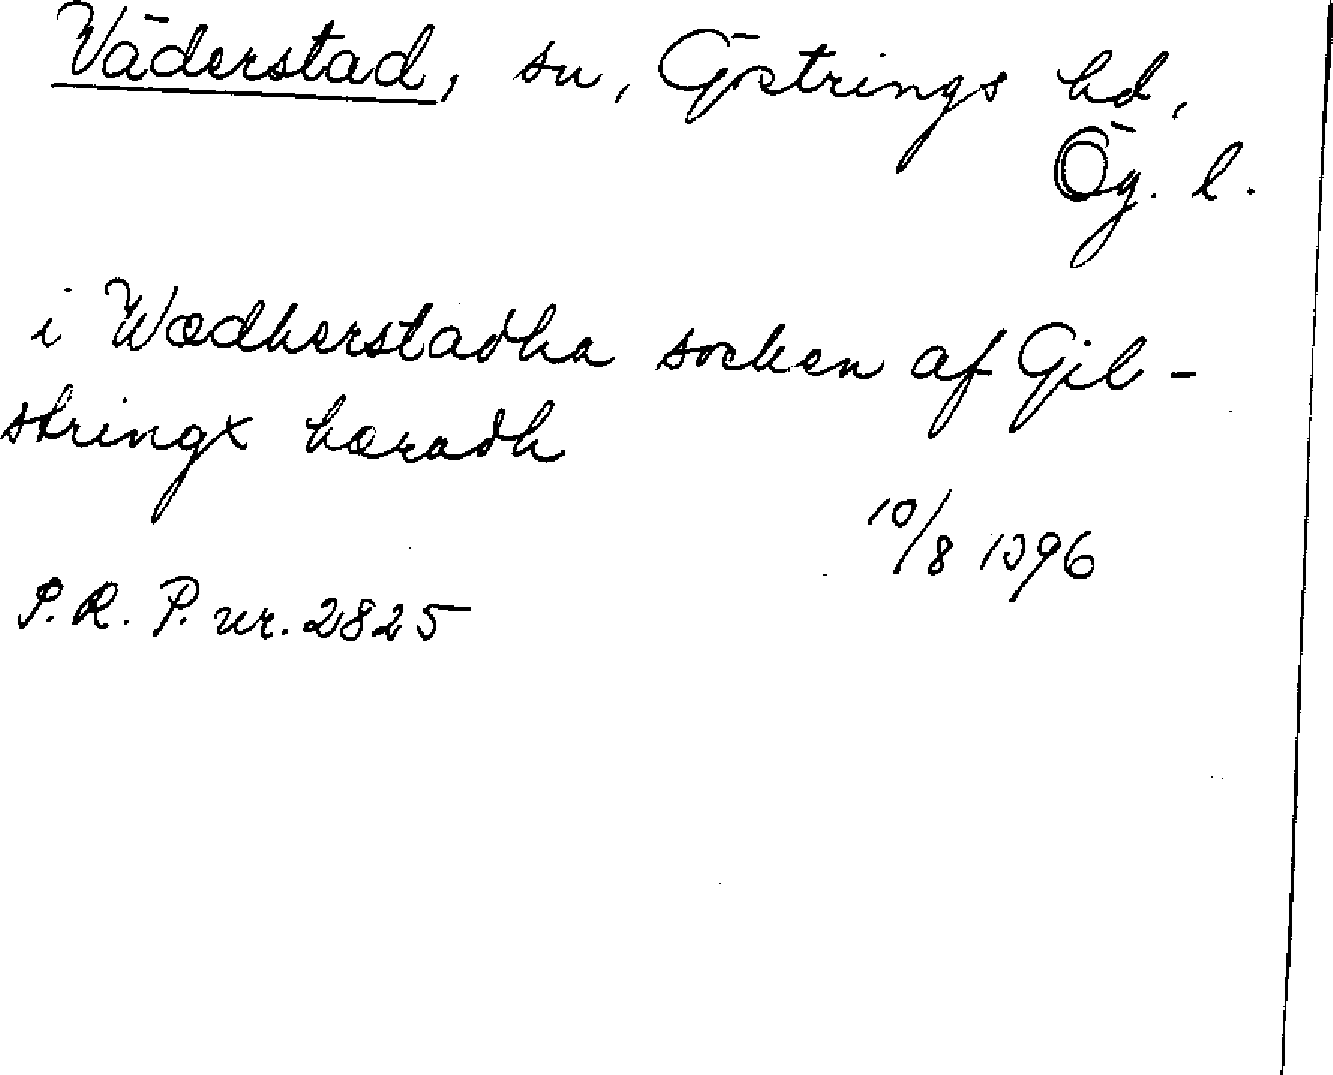 Väderstad, sn, Göstrings hd,
Ög. l.
i Wædherstadha socken af Gil-
stringx hæradh
10/8 1396
S.R.P. nr. 2825